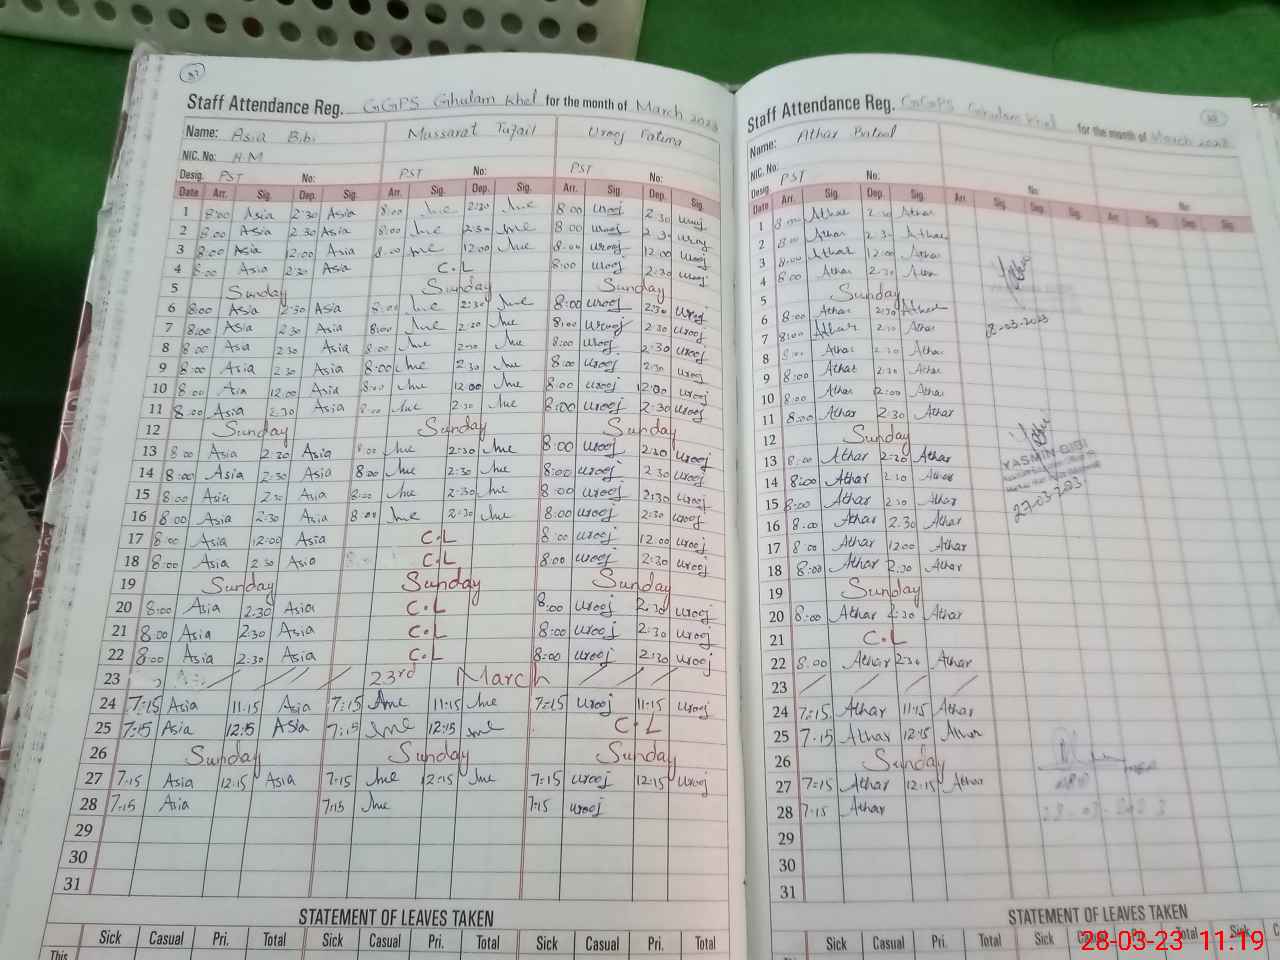 37
Staff Attendance Reg. GGPS Ghulam Khel for the month of March 2023
Name: Asia Bibi Mussarat Tufail Urooj Fatima
NIC. No: H.M
Desig. PST No: PST No: PST No:
Date Arr. Sig. Dep. Sig. Arr. Sig. Dep. Sig. Arr. Sig. Dep. Sig.
1 8:00 Asia 2:30 Asia 8:00 2:30 8:00 urooj 2:30 urooj
2 8:00 Asia 2:30 Asia 8:00 2:30 8:00 urooj 2:30 urooj
3 8:00 Asia 12:00 Asia 8:00 12:00 8:00 urooj 12:00 urooj
4 8:00 Asia 2:30 Asia C.L 8:00 urooj 2:30 urooj
5 Sunday Sunday Sunday
6 8:00 Asia 2:30 Asia 8:00 2:30 8:00 urooj 2:30 urooj
7 8:00 Asia 2:30 Asia 8:00 2:30 8:00 urooj 2:30 urooj
8 8:00 Asia 2:30 Asia 8:00 2:30 8:00 urooj 2:30 urooj
9 8:00 Asia 2:30 Asia 8:00 2:30 8:00 urooj 2:30 urooj
10 8:00 Asia 12:00 Asia 8:00 12:00 8:00 urooj 12:00 urooj
11 8:00 Asia 2:30 Asia 8:00 2:30 8:00 urooj 2:30 urooj
12 Sunday Sunday Sunday
13 8:00 Asia 2:30 Asia 8:00 2:30 8:00 urooj 2:30 urooj
14 8:00 Asia 2:30 Asia 8:00 2:30 8:00 urooj 2:30 urooj
15 8:00 Asia 2:30 Asia 8:00 2:30 8:00 urooj 2:30 urooj
16 8:00 Asia 2:30 Asia 8:00 2:30 8:00 urooj 2:30 urooj
17 8:00 Asia 12:00 Asia C.L 8:00 urooj 12:00 urooj
18 8:00 Asia 2:30 Asia C.L 8:00 urooj 2:30 urooj
19 Sunday Sunday Sunday
20 8:00 Asia 2:30 Asia C.L 8:00 urooj 2:30 urooj
21 8:00 Asia 2:30 Asia C.L 8:00 urooj 2:30 urooj
22 8:00 Asia 2:30 Asia C.L 8:00 urooj 2:30 urooj
23 / / / / 23rd March / / /
24 7:15 Asia 11:15 Asia 7:15 11:15 7:15 urooj 11:15 urooj
25 7:15 Asia 12:15 Asia 7:15 12:15 C.L
26 Sunday Sunday Sunday
27 7:15 Asia 12:15 Asia 7:15 12:15 7:15 urooj 12:15 urooj
28 7:15 Asia 7:15 7:15 urooj
29
30
31
STATEMENT OF LEAVES TAKEN
Sick Casual Pri. Total Sick Casual Pri. Total Sick Casual Pri. Total
This
Staff Attendance Reg. GGPS Ghulam Khel for the month of March 2023
Name: Athar Batool
NIC. No:
Desig. PST No: No: No:
Date Arr. Sig. Dep. Sig. Arr. Sig. Dep. Sig. Arr. Sig. Dep. Sig.
1 8:00 Athar 2:30 Athar
2 8:00 Athar 2:30 Athar
3 8:00 Athar 12:00 Athar
4 8:00 Athar 2:30 Athar
5 Sunday
6 8:00 Athar 2:30 Athar
7 8:00 Athar 2:30 Athar
8 8:00 Athar 2:30 Athar
9 8:00 Athar 2:30 Athar
10 8:00 Athar 12:00 Athar
11 8:00 Athar 2:30 Athar
12 Sunday
13 8:00 Athar 2:30 Athar
YASMIN BIBI
14 8:00 Athar 2:30 Athar
15 8:00 Athar 2:30 Athar
27-03-2023
16 8:00 Athar 2:30 Athar
17 8:00 Athar 12:00 Athar
18 8:00 Athar 2:30 Athar
19 Sunday
20 8:00 Athar 2:30 Athar
21 C.L
22 8:00 Athar 2:30 Athar
23 / / / /
24 7:15 Athar 11:15 Athar
25 7:15 Athar 12:15 Athar
26 Sunday
27 7:15 Athar 12:15 Athar
28 7:15 Athar
28-03-2023
29
30
31
STATEMENT OF LEAVES TAKEN
Sick Casual Pri. Total Sick Casual Pri. Total Sick
28-03-23 11.19